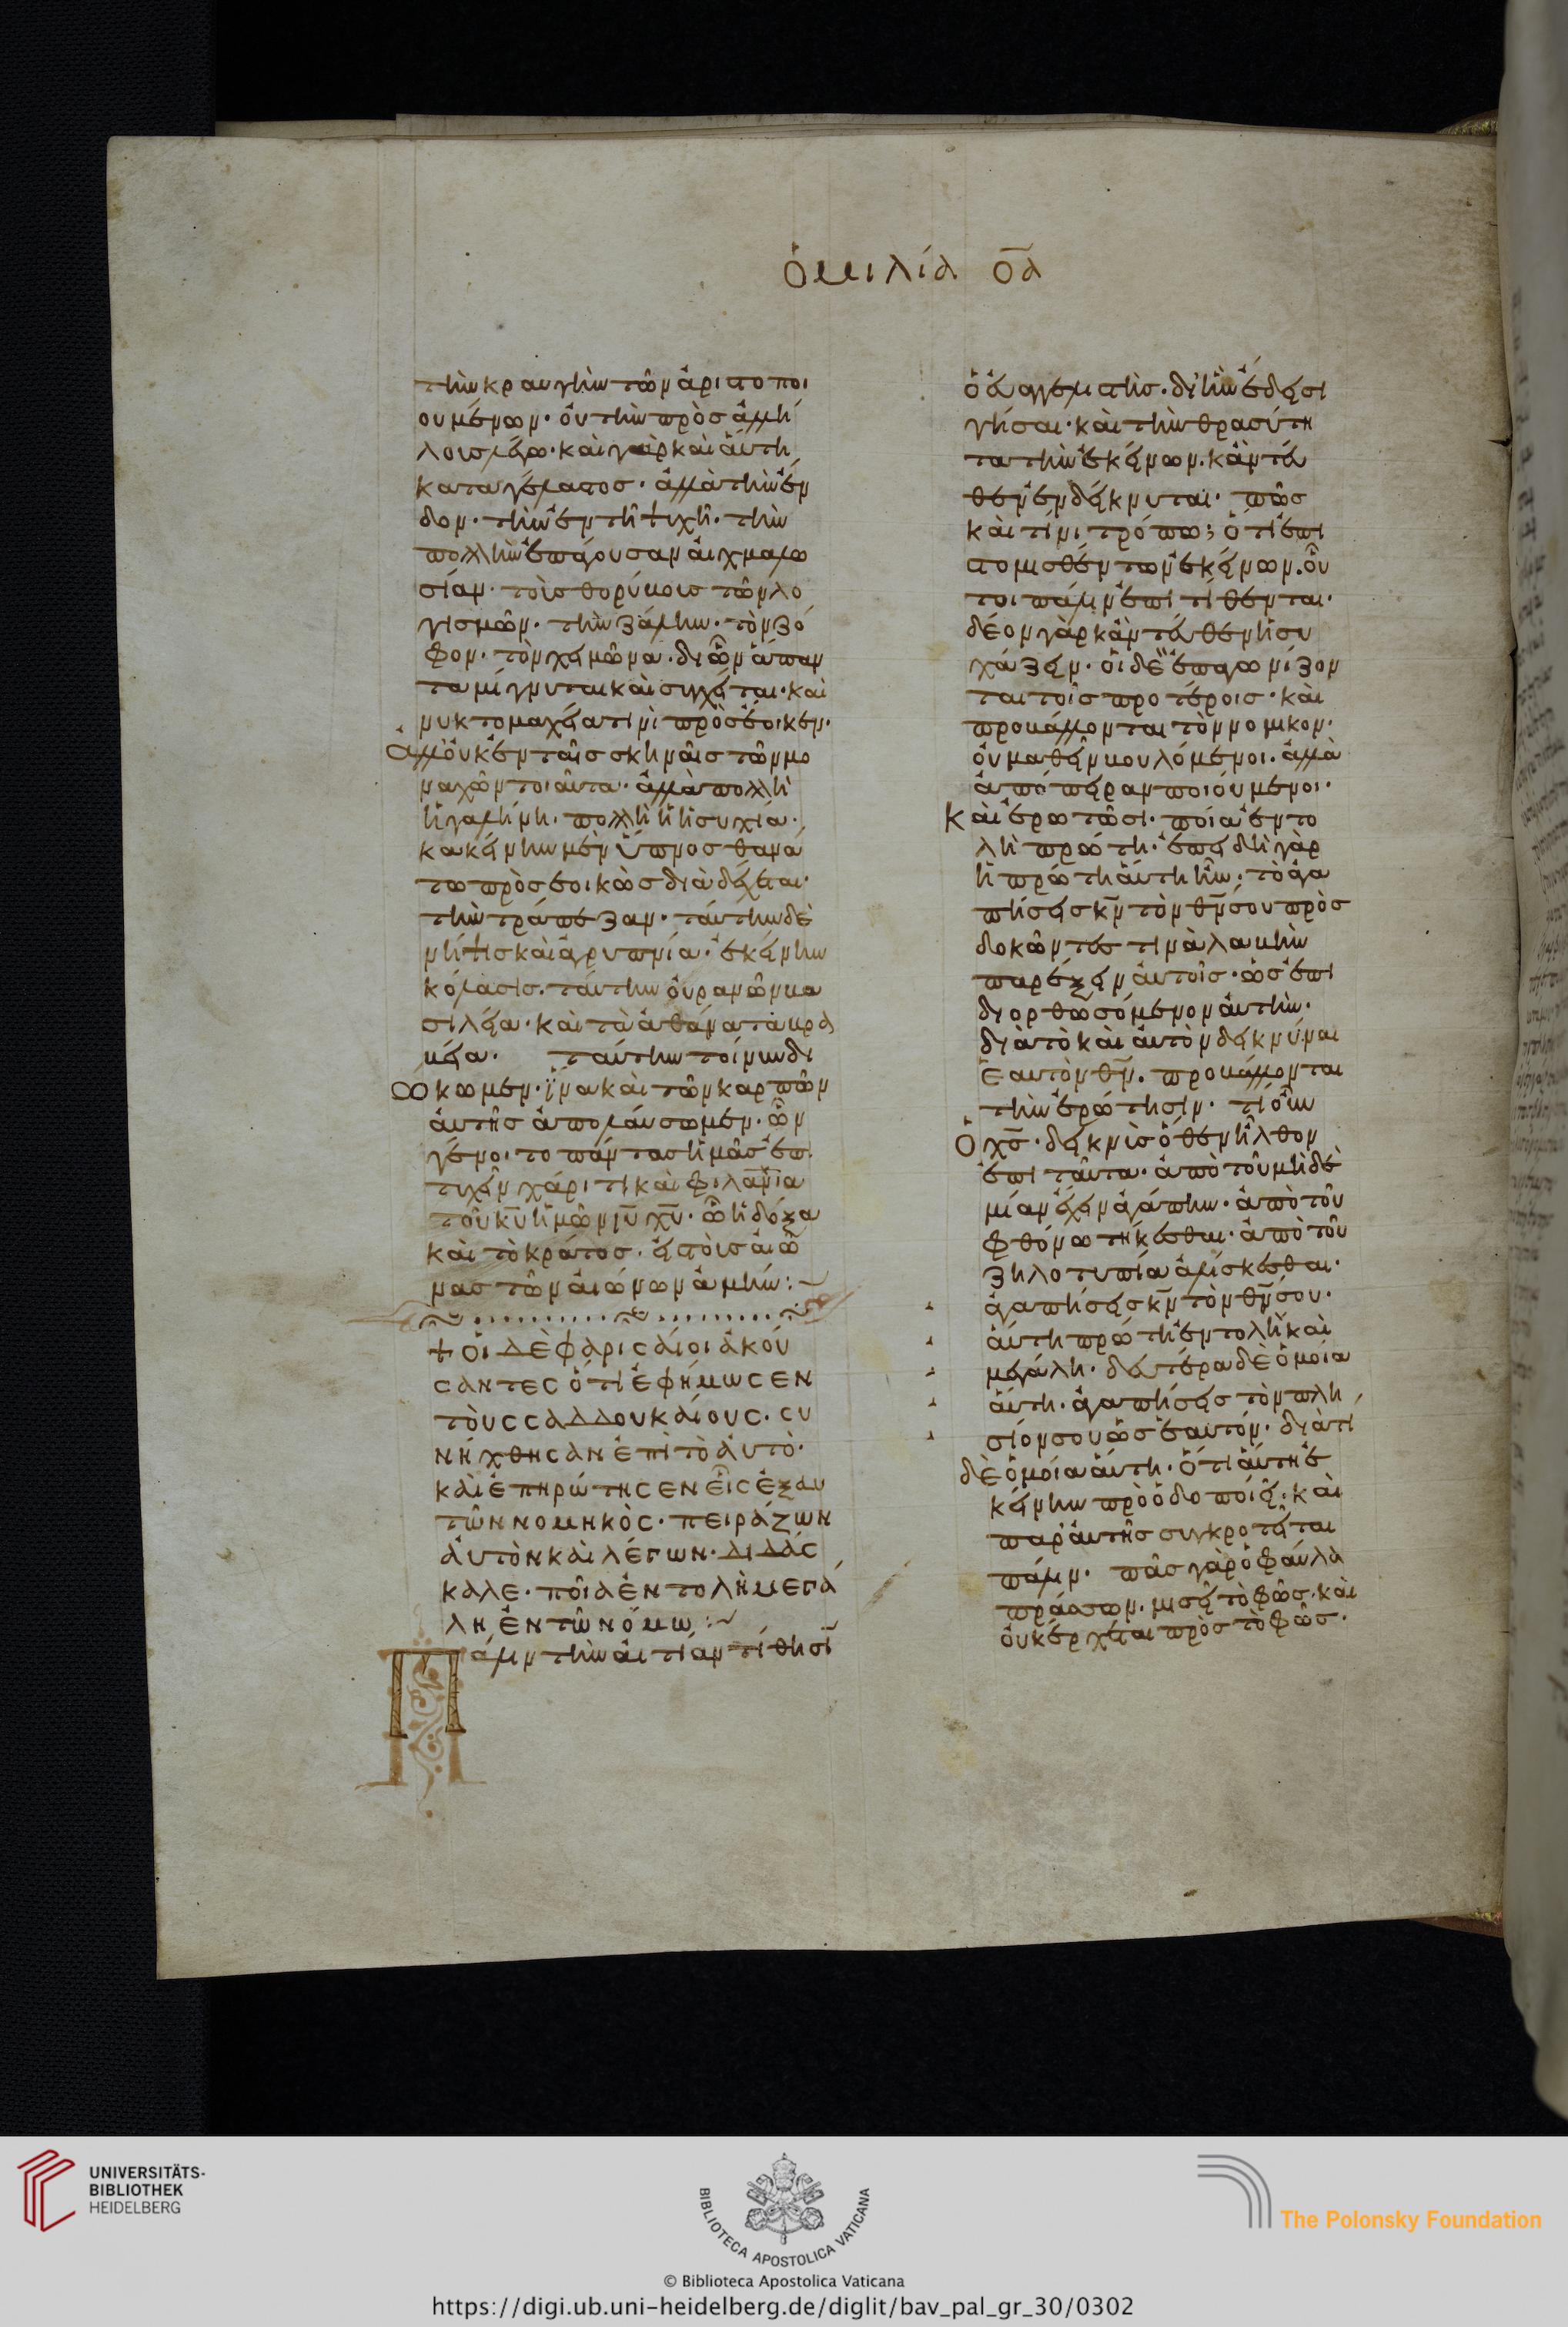 ὁμιλία οα
τὴν κραυγὴν τῶν ἀριστοποι
ουμένων· οὐ τὴν πρὸς ἀλλή
λους λέγω· καὶ γὰρ καὶ αὕτη
καταγέλαστος· ἀλλὰ τὴν ἔν
δον· τὴν ἐν τῆ ψυχῆ· τὴν
πολλὴν ἐπάγουσαν αἰχμαλω
σίαν· τοὺς θορύβους τῶν λο
γισμῶν· τὴν ζάλην· τὸν ζό
φον· τὸν χειμῶνα· δι' ὧν ἅπαν
τα μίγνυται καὶ συγχεῖται· καὶ
νυκτομαχεία τινὶ προσέοικεν·
ἀλλ' οὐκ ἐν ταῖς σκηναῖς τῶν μο
ναχῶν τοιαῦτα· ἀλλὰ πολλὴ
ἡ γαλήνη· πολλὴ ἡ ἡσυχία·
κακείνην μὲν ὕπνος θανά
τω προσεοικὼς διαδέχεται·
τὴν τράπεζαν· ταύτην δὲ
νῆψις καὶ ἀγρυπνία· ἐκείνην
κόλασις· ταύτην οὐρανῶν βα
σιλεία· καὶ τὰ ἀθάνατα βρα
βεῖα· ταύτην τοίνυν δι
ώκωμεν· ἵνα καὶ τῶν καρπῶν
αὐτῆς ἀπολαύσωμεν· ὧν
γένοιτο πάντας ἡμᾶς ἐπι
τυχεῖν χάριτι καὶ φιλανῖα
τοῦ κυ ἡμῶν ιυ χυ· ὧ ἡ δόξα
καὶ τὸ κράτος· εἰς τοὺς αἰῶ
νας τῶν αἰώνων ἀμήν:~
+ ΟἹ ΔῈ ΦΑΡΙCΑῖΟΙ ἈΚΟΎ
CΑΝΤΕC ὉΤΙ ἘΦΉΜΩCΕΝ
ΤΟῪC CΑΔΔΟΥΚΑΊΟΥC· CΥ
ΝΉΧΘΗCΑΝ ἘΠῚ ΤῸ ΑΥΤΌ·
ΚΑῚ ἘΠΗΡΏΤΗCΕΝ ΕἿC ἘΞ ΑΥ
ΤῶΝ ΝΟΜΗΚῸC· ΠΕΙΡΆΖΩΝ
ΑΥΤῸΝ ΚΑῚ ΛΈΓΩΝ· ΔΙΔΆC
ΚΑΛΕ· ΠΟΊΑ ἘΝΤΟΛῊ ΜΕΓΆ
ΛΗ ἘΝ Τῶ ΝΌΜΩ:~
Πάλιν τὴν αἰτίαν τίθησι
ὁ εὐαγγελιστὴς· δι' ἣν ἔδει σι
γῆσαι· καὶ τὴν θρασύτη
τα τὴν ἐκείνων· κἀντεῦ
θεν ἐνδείκνυται· πῶς
καὶ τίνι τρόπω; ὅτι ἐπι
στομισθέντων ἐκείνων· οὗ
τοι πάλιν ἐπιτίθενται·
δέον γὰρ κἀντεῦθεν ἡσυ
χάζειν· οἱ δὲ ἐπαγωνίζον
ται τοῖς προτέροις· καὶ
προβάλλονται τὸν νομικόν·
οὐ μαθεῖν βουλόμενοι· ἀλλὰ
ἀπόπειραν ποιούμενοι·
Καὶ ἐρωτῶσι· ποία ἐντο
λὴ πρώτη· ἐπειδὴ γὰρ
ἡ πρώτη αὕτη ἦν· τὸ ἀγα
πήσεις κν τὸν θν σου προσ
δοκῶντες τινὰ λαβὴν
παρέξειν αὐτοῖς· ὡς ἐπι
διορθωσόμενον αὐτὴν·
διὰ τὸ καὶ αὐτὸν δεικνύναι
ἑαυτὸν θν· προβάλλονται
τὴν ἐρώτησιν· τί οὖν
ὁ χς· δεικνὺς ὅθεν ἦλθον
ἐπι ταῦτα· ἀπὸ τοῦ μηδε
μίαν ἔχειν ἀγάπην· ἀπὸ τοῦ
φθόνω τήκεσθαι· ἀπὸ τοῦ
ζηλοτυπία ἁλίσκεσθαι·
ἀγαπήσεις κν τὸν θν σου·
αὕτη πρώτη ἐντολὴ καὶ
μεγάλη· δευτέρα δὲ ὁμοία
αὕτη· ἀγαπήσεις τὸν πλη
σίον σου ὡς ἑαυτόν· διατί
δὲ ὁμοία αὕτη· ὅτι αὕτη ἐ
κείνην προοδοποιεῖ· καὶ
παρ' αὐτῆς συγκροτεῖται
πάλιν· πᾶς γὰρ ὁ φαῦλα
πράσσων· μισεῖ τὸ φῶς· καὶ
οὐκ ἔρχεται πρὸς τὸ φῶς·
UNIVERSITÄTS-
BIBLIOTHEK
HEIDELBERG
BIBLIOTECA APOSTOLICA VATICANA
The Polonsky Foundation
© Biblioteca Apostolica Vaticana
https://digi.ub.uni-heidelberg.de/diglit/bav_pal_gr_30/0302